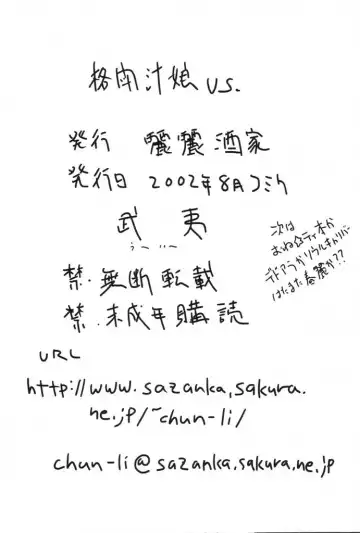 格闘汁娘 vs.
発行 麗麗酒家
発行日 2002年8月コミケ
武夷
うーいー
次は
おねロティ本か
デドアラかソウルキャリバー
はたまた春麗か??
禁・無断転載
禁・未成年購読
URL
http://www.sazanka.sakura.
ne.jp/~chun-li/
chun-li@sazanka.sakura.ne.jp